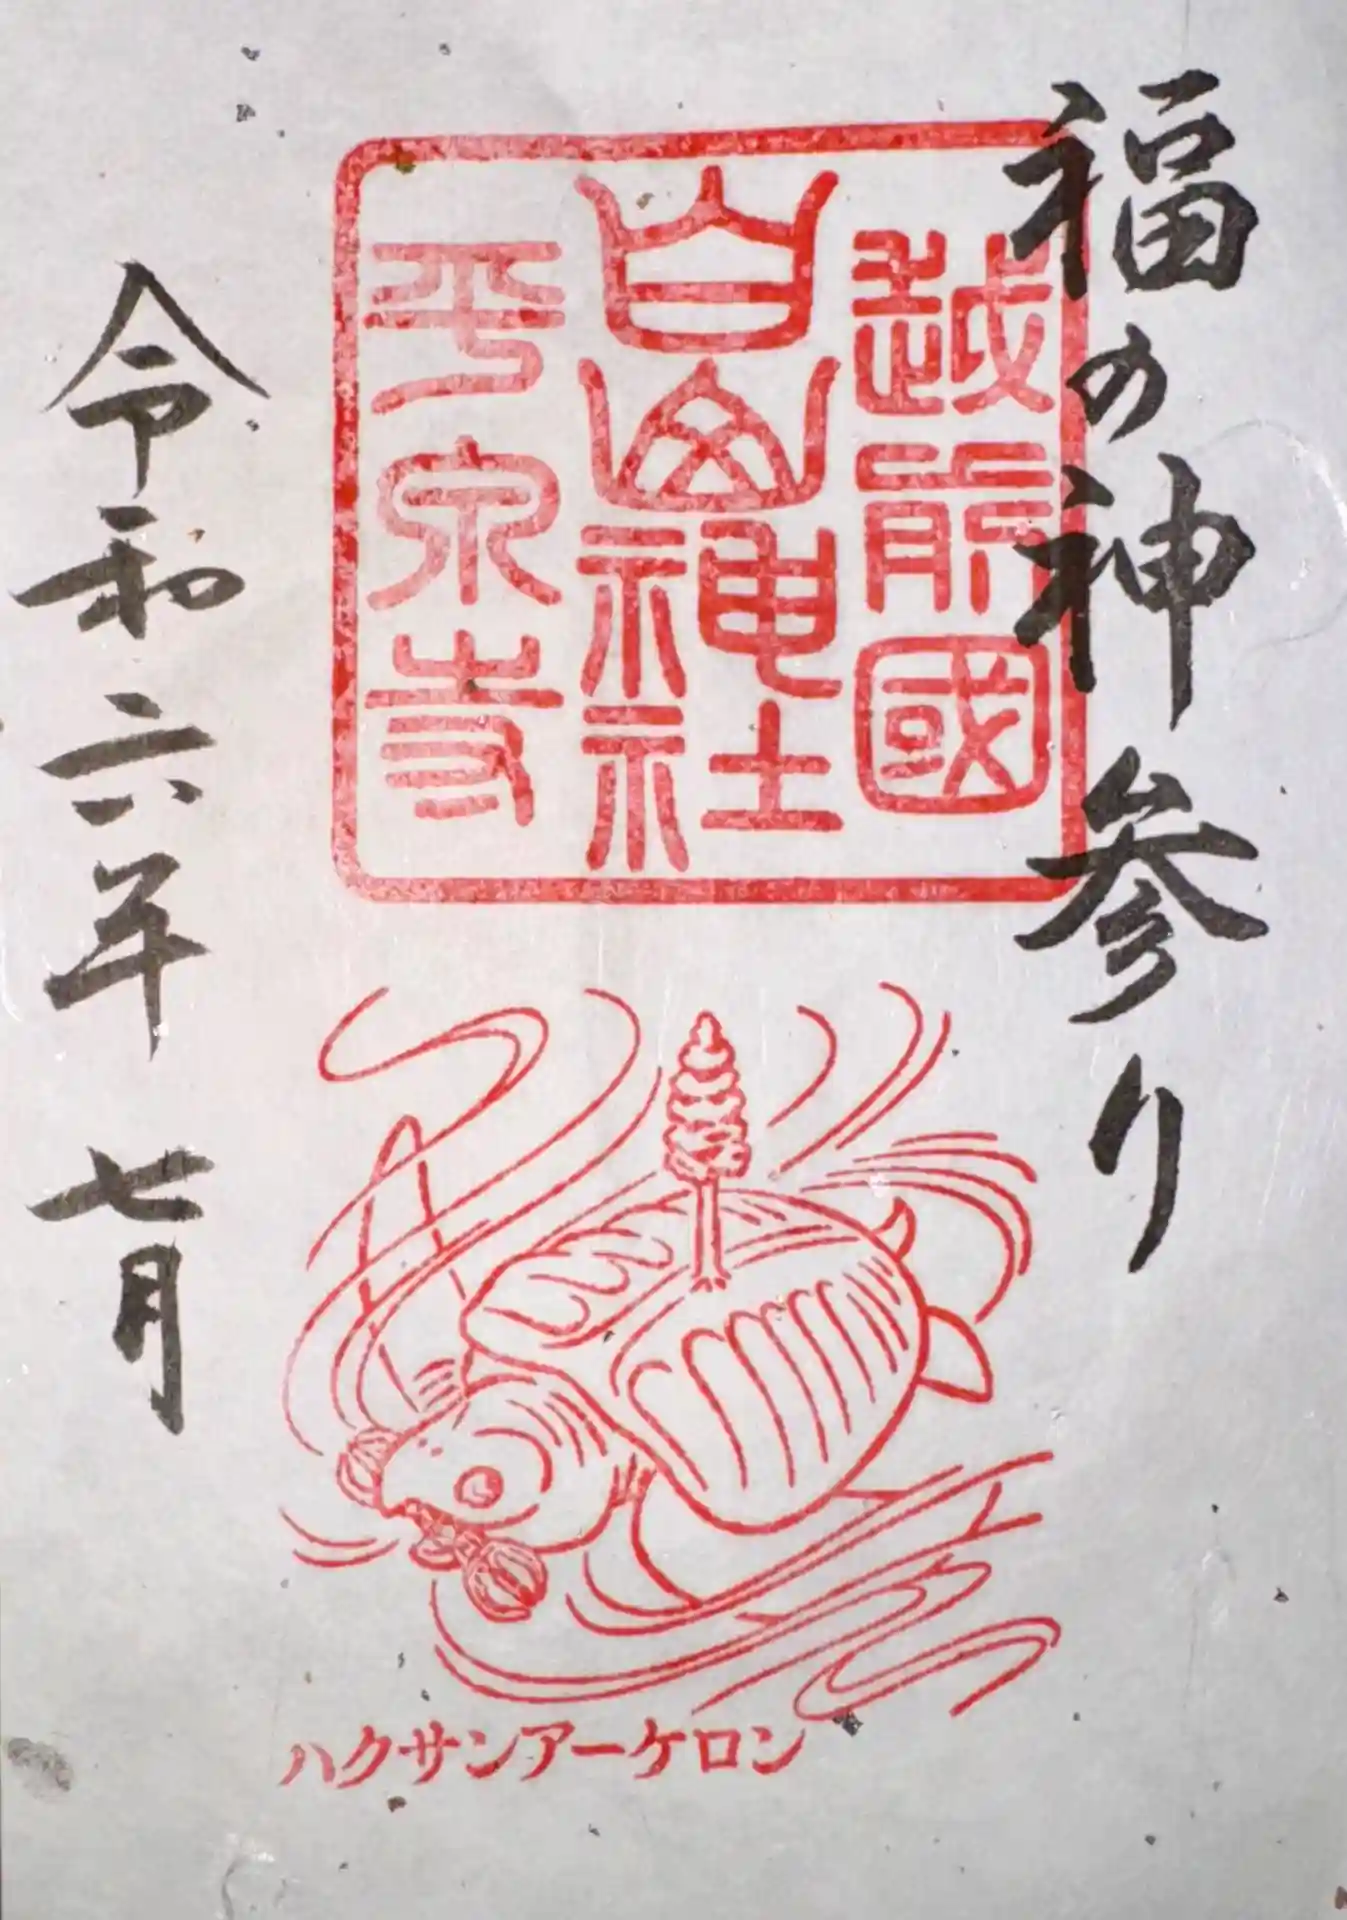 福の神参り
越前國
白山神社
平泉寺
令和六年七月
ハクサンアーケロン